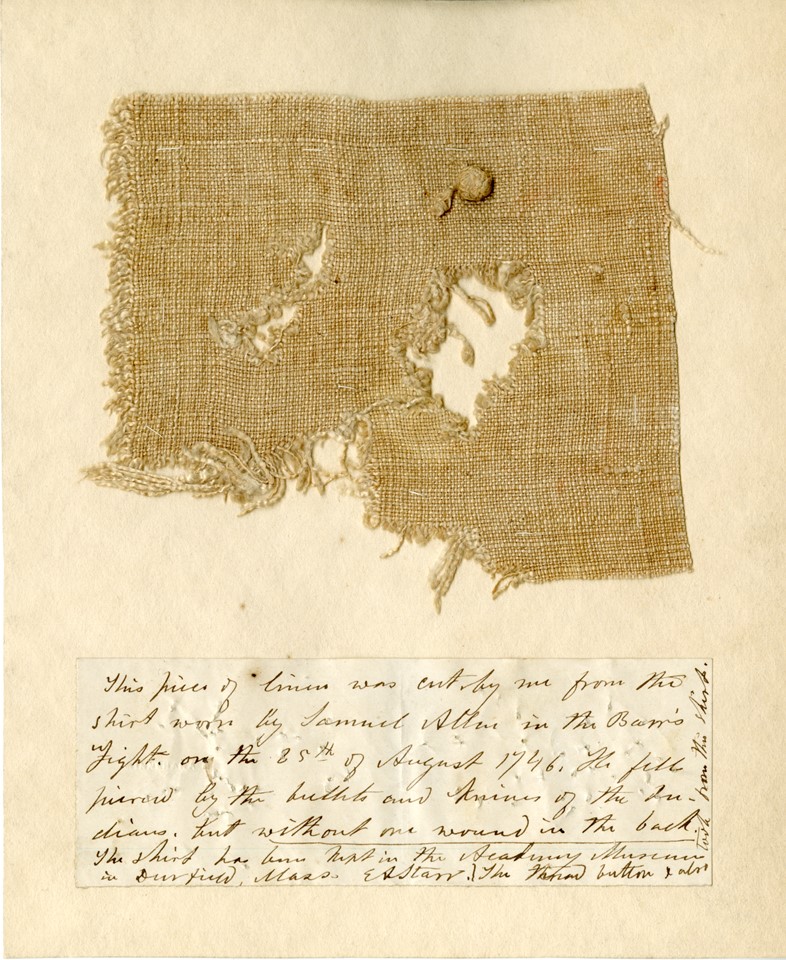 This piece of linen was cut by me from the
shirt worn by Samuel Allen in the Barrs
Fight. on the 25th of August 1746. He fell
pierced by the bullets and knives of the In-
dians. but without one wound in the back.
The shirt has been kept in the Academy Museum
in Deerfield, Mass. EAStarr. The thread button & also
took from this shirt.